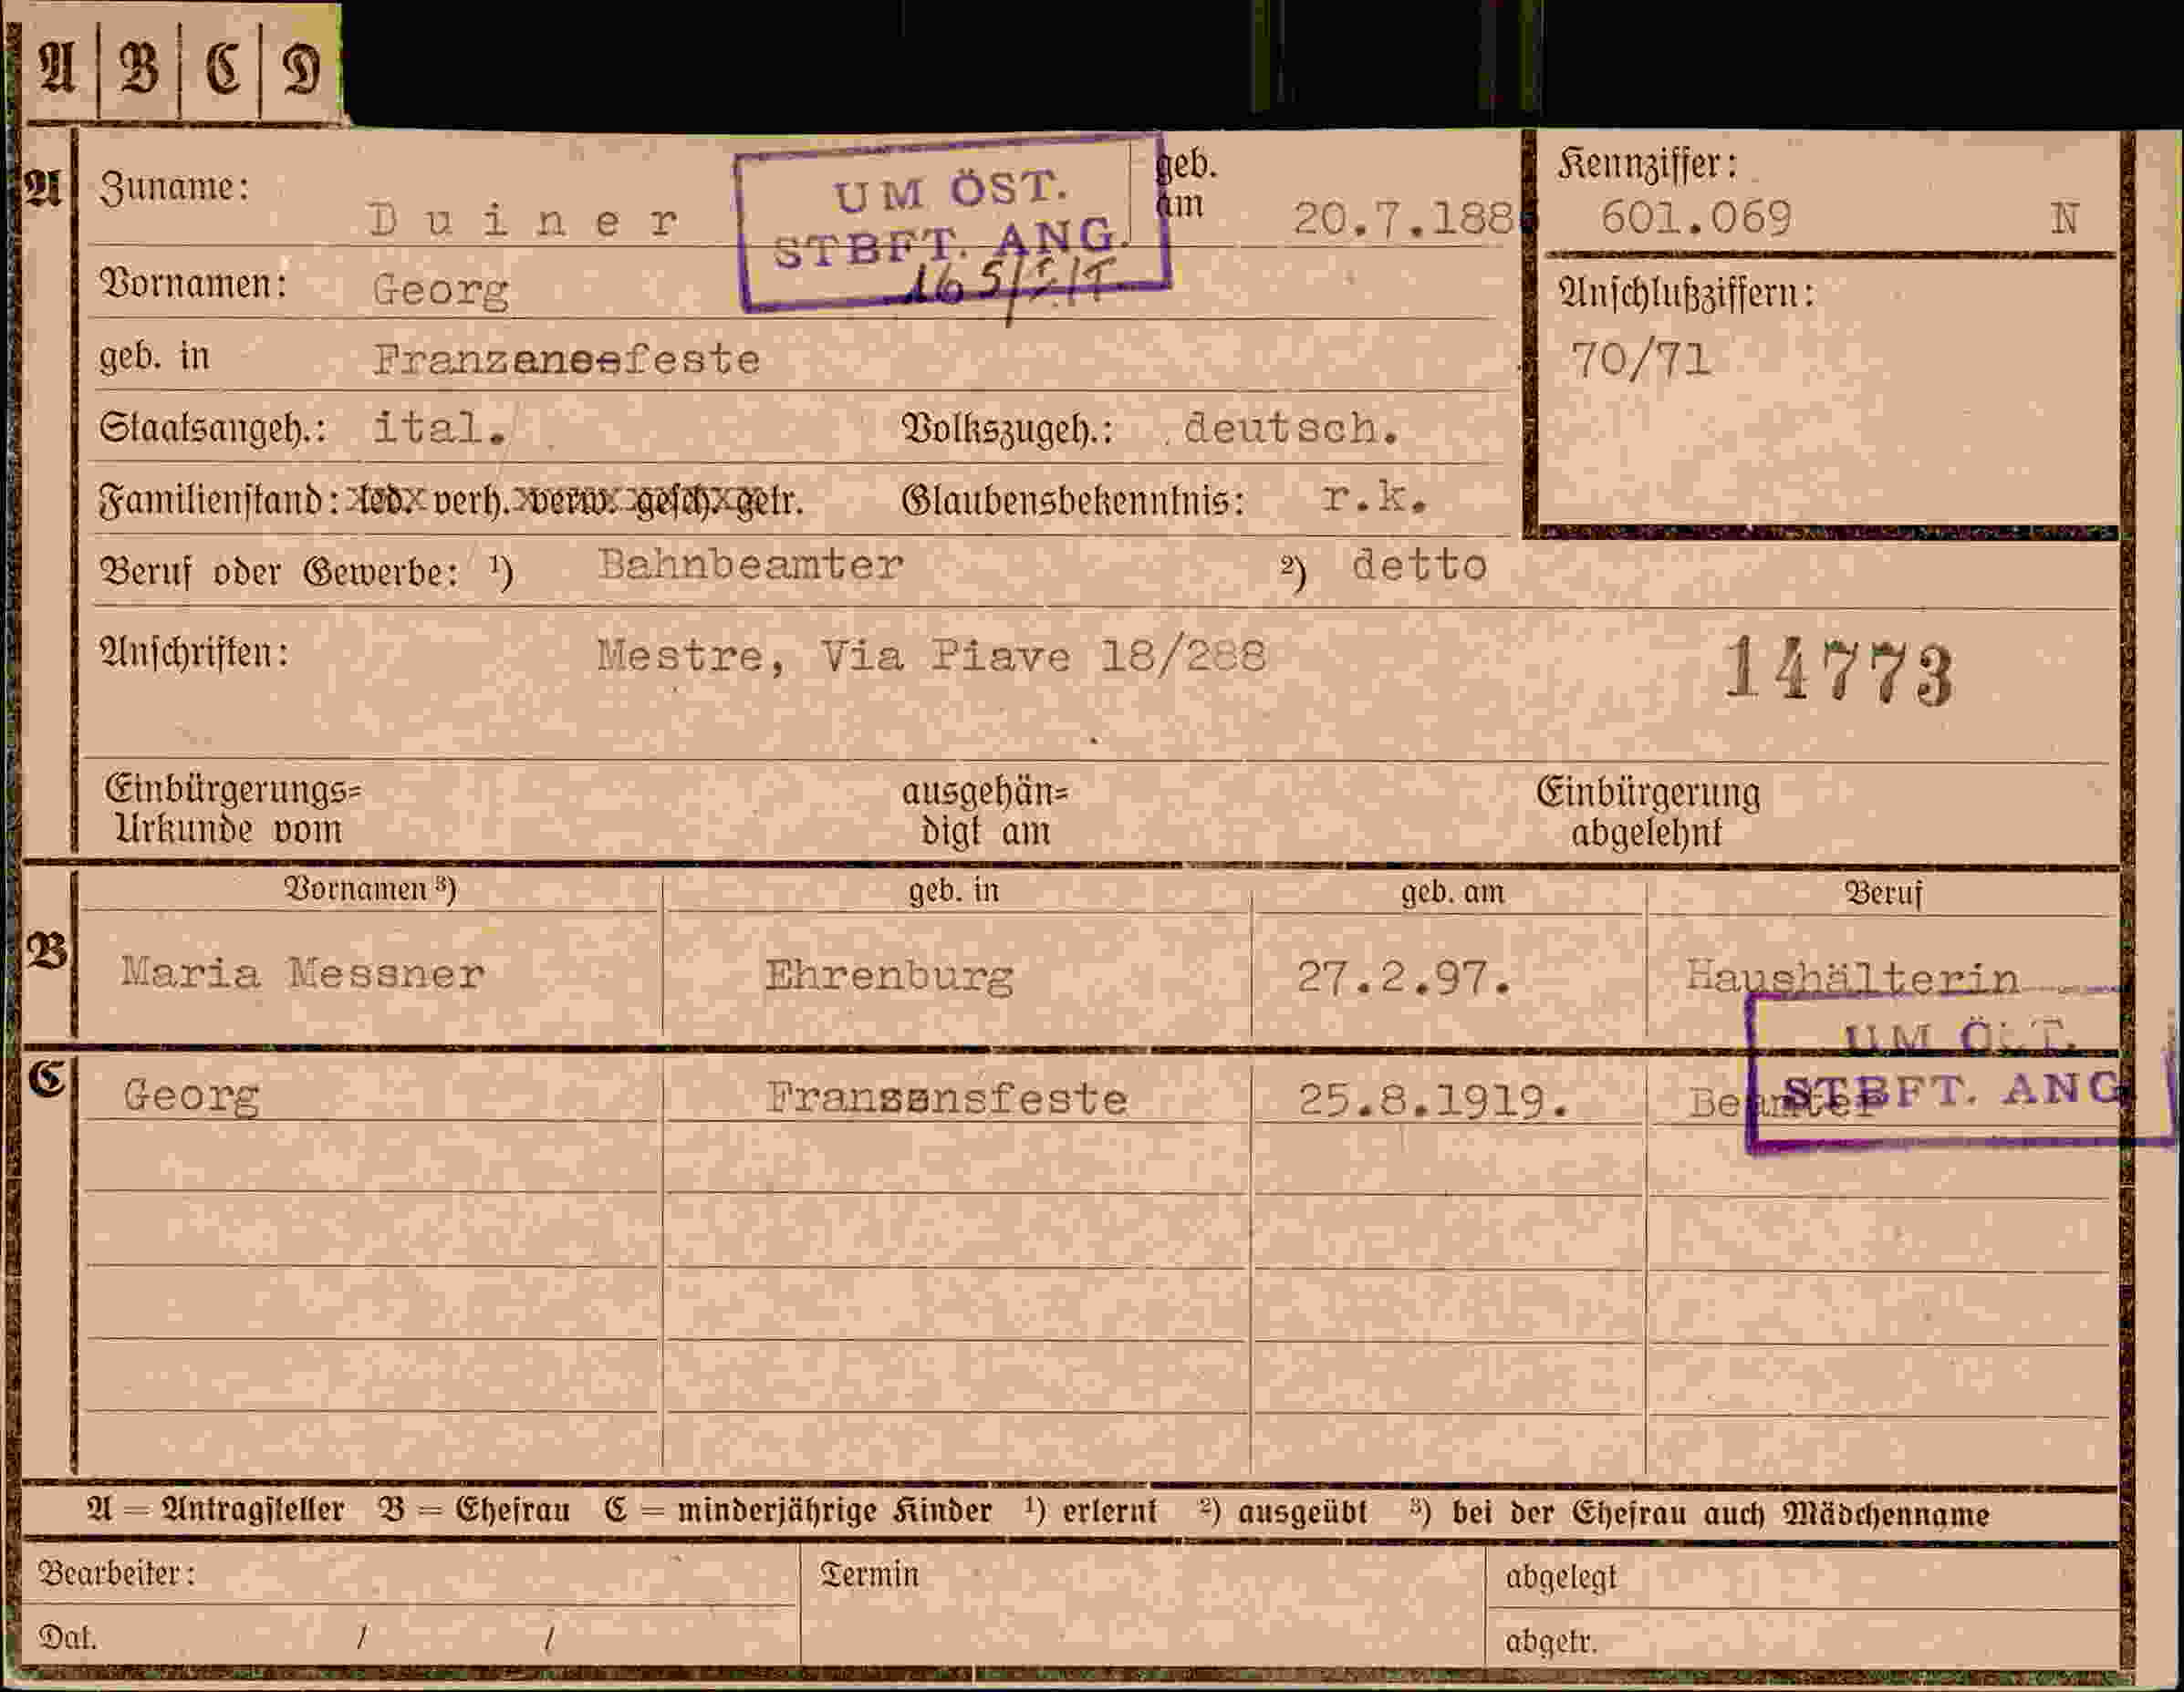 A | B | C | D
A Zuname: Duiner geb. am 20.7.188
UM ÖST.
STBFT. ANG.
Kennziffer: 601.069 N
Vornamen: Georg
Anschlußziffern:
70/71
geb. in Franzenesfeste
Staatsangeh.: ital. Volkszugeh.: deutsch.
Familienstand: led. verh. verw. gesch. getr. Glaubensbekenntnis: r.k.
Beruf oder Gewerbe: ¹) Bahnbeamter ²) detto
Anschriften: Mestre, Via Piave 18/288
14773
Einbürgerungs= ausgehän= Einbürgerung
Urkunde vom digt am abgelehnt
Vornamen ³) geb. in geb. am Beruf
B Maria Messner Ehrenburg 27.2.97. Haushälterin
UM ÖST.
STBFT. ANG
C Georg Fransensfeste 25.8.1919. Beamter
A = Antragsteller B = Ehefrau C = minderjährige Kinder ¹) erlernt ²) ausgeübt ³) bei der Ehefrau auch Mädchenname
Bearbeiter: Termin abgelegt
Dat. / / abgetr.